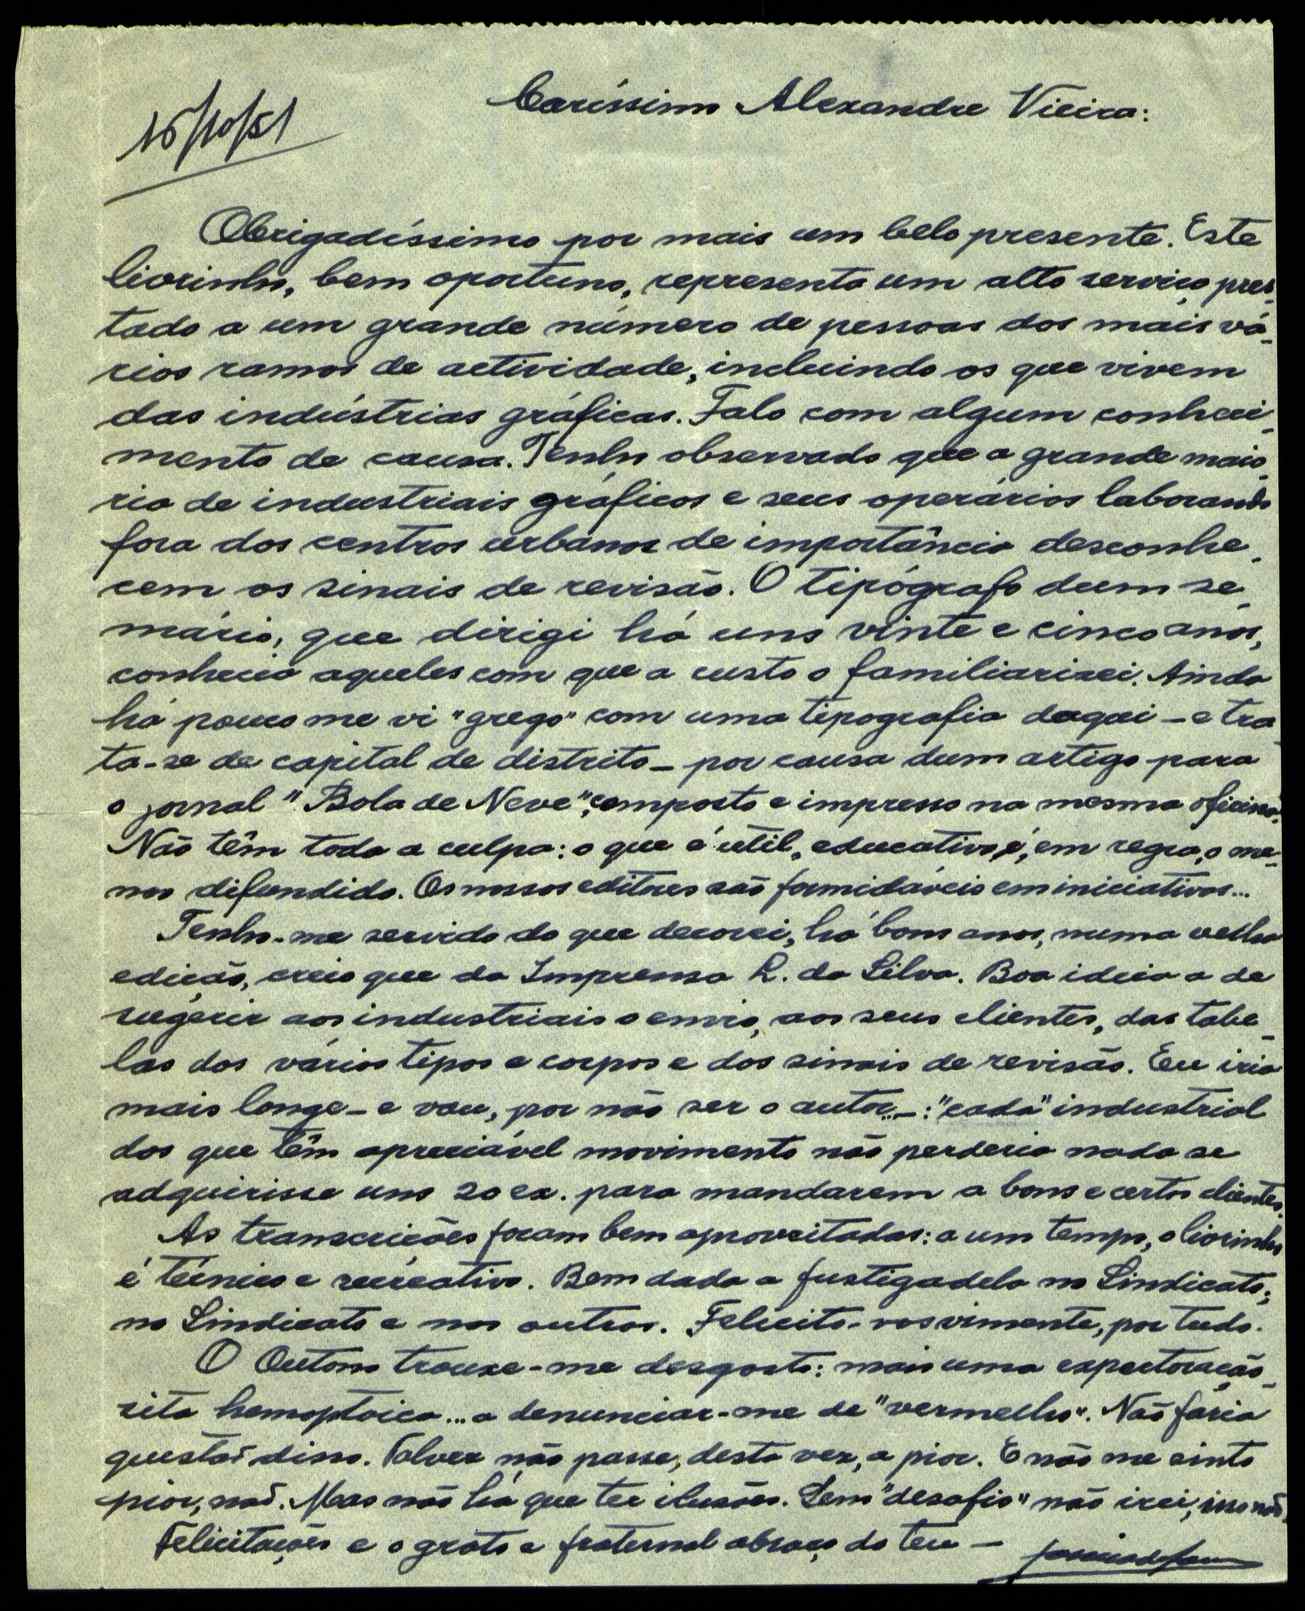 Caríssimo Alexandre Vieira:
15/10/51
Obrigadíssimo por mais um belo presente. Este
livrinho, bem oportuno, representa um alto serviço pres-
tado a um grande número de pessoas dos mais vá-
rios ramos de actividade, incluindo os que vivem
das indústrias gráficas. Falo com algum conheci-
mento de causa. Tenho observado que a grande maio-
ria de industriais gráficos e seus operários laborando
fora dos centros urbanos de importância desconhe-
cem os sinais de revisão. O tipógrafo dum se-
mário, que dirigi há uns vinte e cinco anos,
conhecia aqueles com que a custo o familiarizei. Ainda
há pouco me vi "grego" com uma tipografia daqui — e tra-
ta-se de capital de distrito — por causa dum artigo para
o jornal "Bola de Neve", composto e impresso na mesma oficina.
Não têm toda a culpa: o que é útil, educativo, é, em regra, o me-
nos difundido. Os nossos editores são formidáveis em iniciativas...
Tenho-me servido do que decorei, há bons anos, numa velha
edição, creio que da Imprensa L. da Silva. Boa ideia a de
sugerir aos industriais o envio, aos seus clientes, das tabe-
las dos vários tipos e corpos e dos sinais de revisão. Eu iria
mais longe — e vou, por não ser o autor... —: "cada" industrial
dos que têm apreciável movimento não perderia nada se
adquirisse uns 20 ex. para mandarem a bons e certos clientes.
As transcrições foram bem aproveitadas: a um tempo, o livrinho
é técnico e recreativo. Bem dada a fustigadela no Sindicato;
no Sindicato e nos outros. Felicito-vos vivamente, por tudo.
O Outono trouxe-me desgosto: mais uma expectoração-
zita hemoptoica... a denunciar-me de "vermelho". Não fazia
questão disso. Talvez não passe, desta vez, a pior. E não me sinto
pior, não. Mas não há que ter ilusões. Sem "desafio" não irei, isso não.
Felicitações e o grato e fraternal abraço do teu —